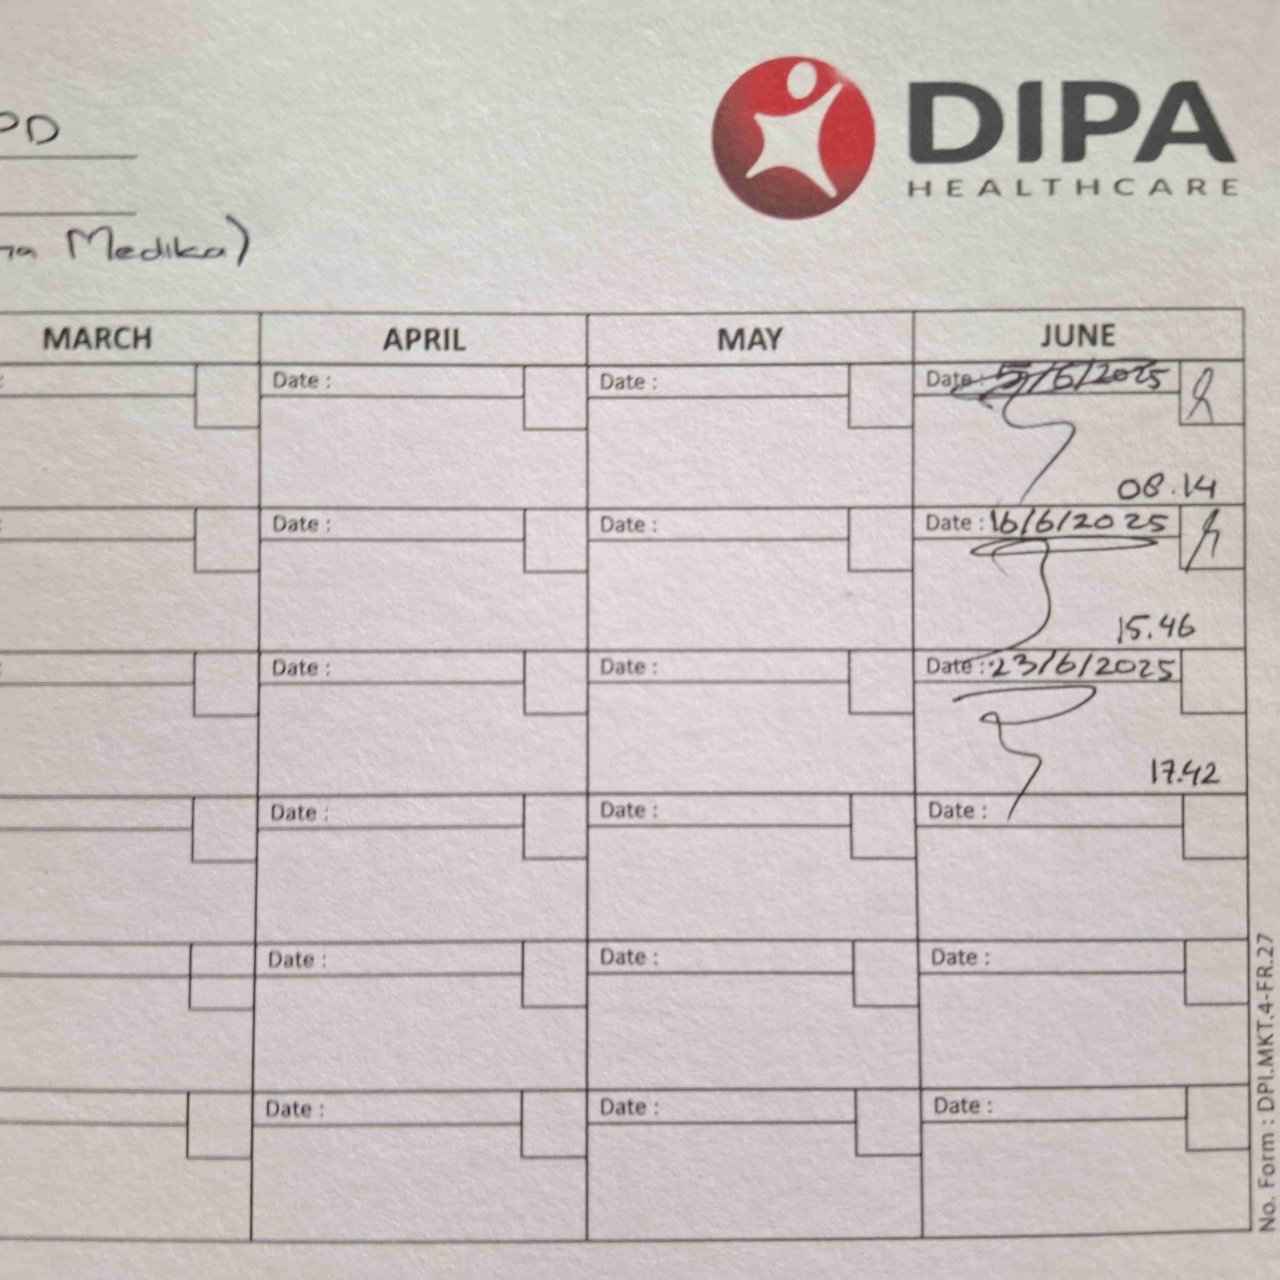 PD
DIPA
HEALTHCARE
Medika)
MARCH APRIL MAY JUNE
: Date : Date : Date : 5/6/2025
08.14
: Date : Date : Date : 16/6/2025
15.46
: Date : Date : Date : 23/6/2025
17.42
Date : Date : Date :
Date : Date : Date :
Date : Date : Date :
No. Form : DPI.MKT.4-FR.27